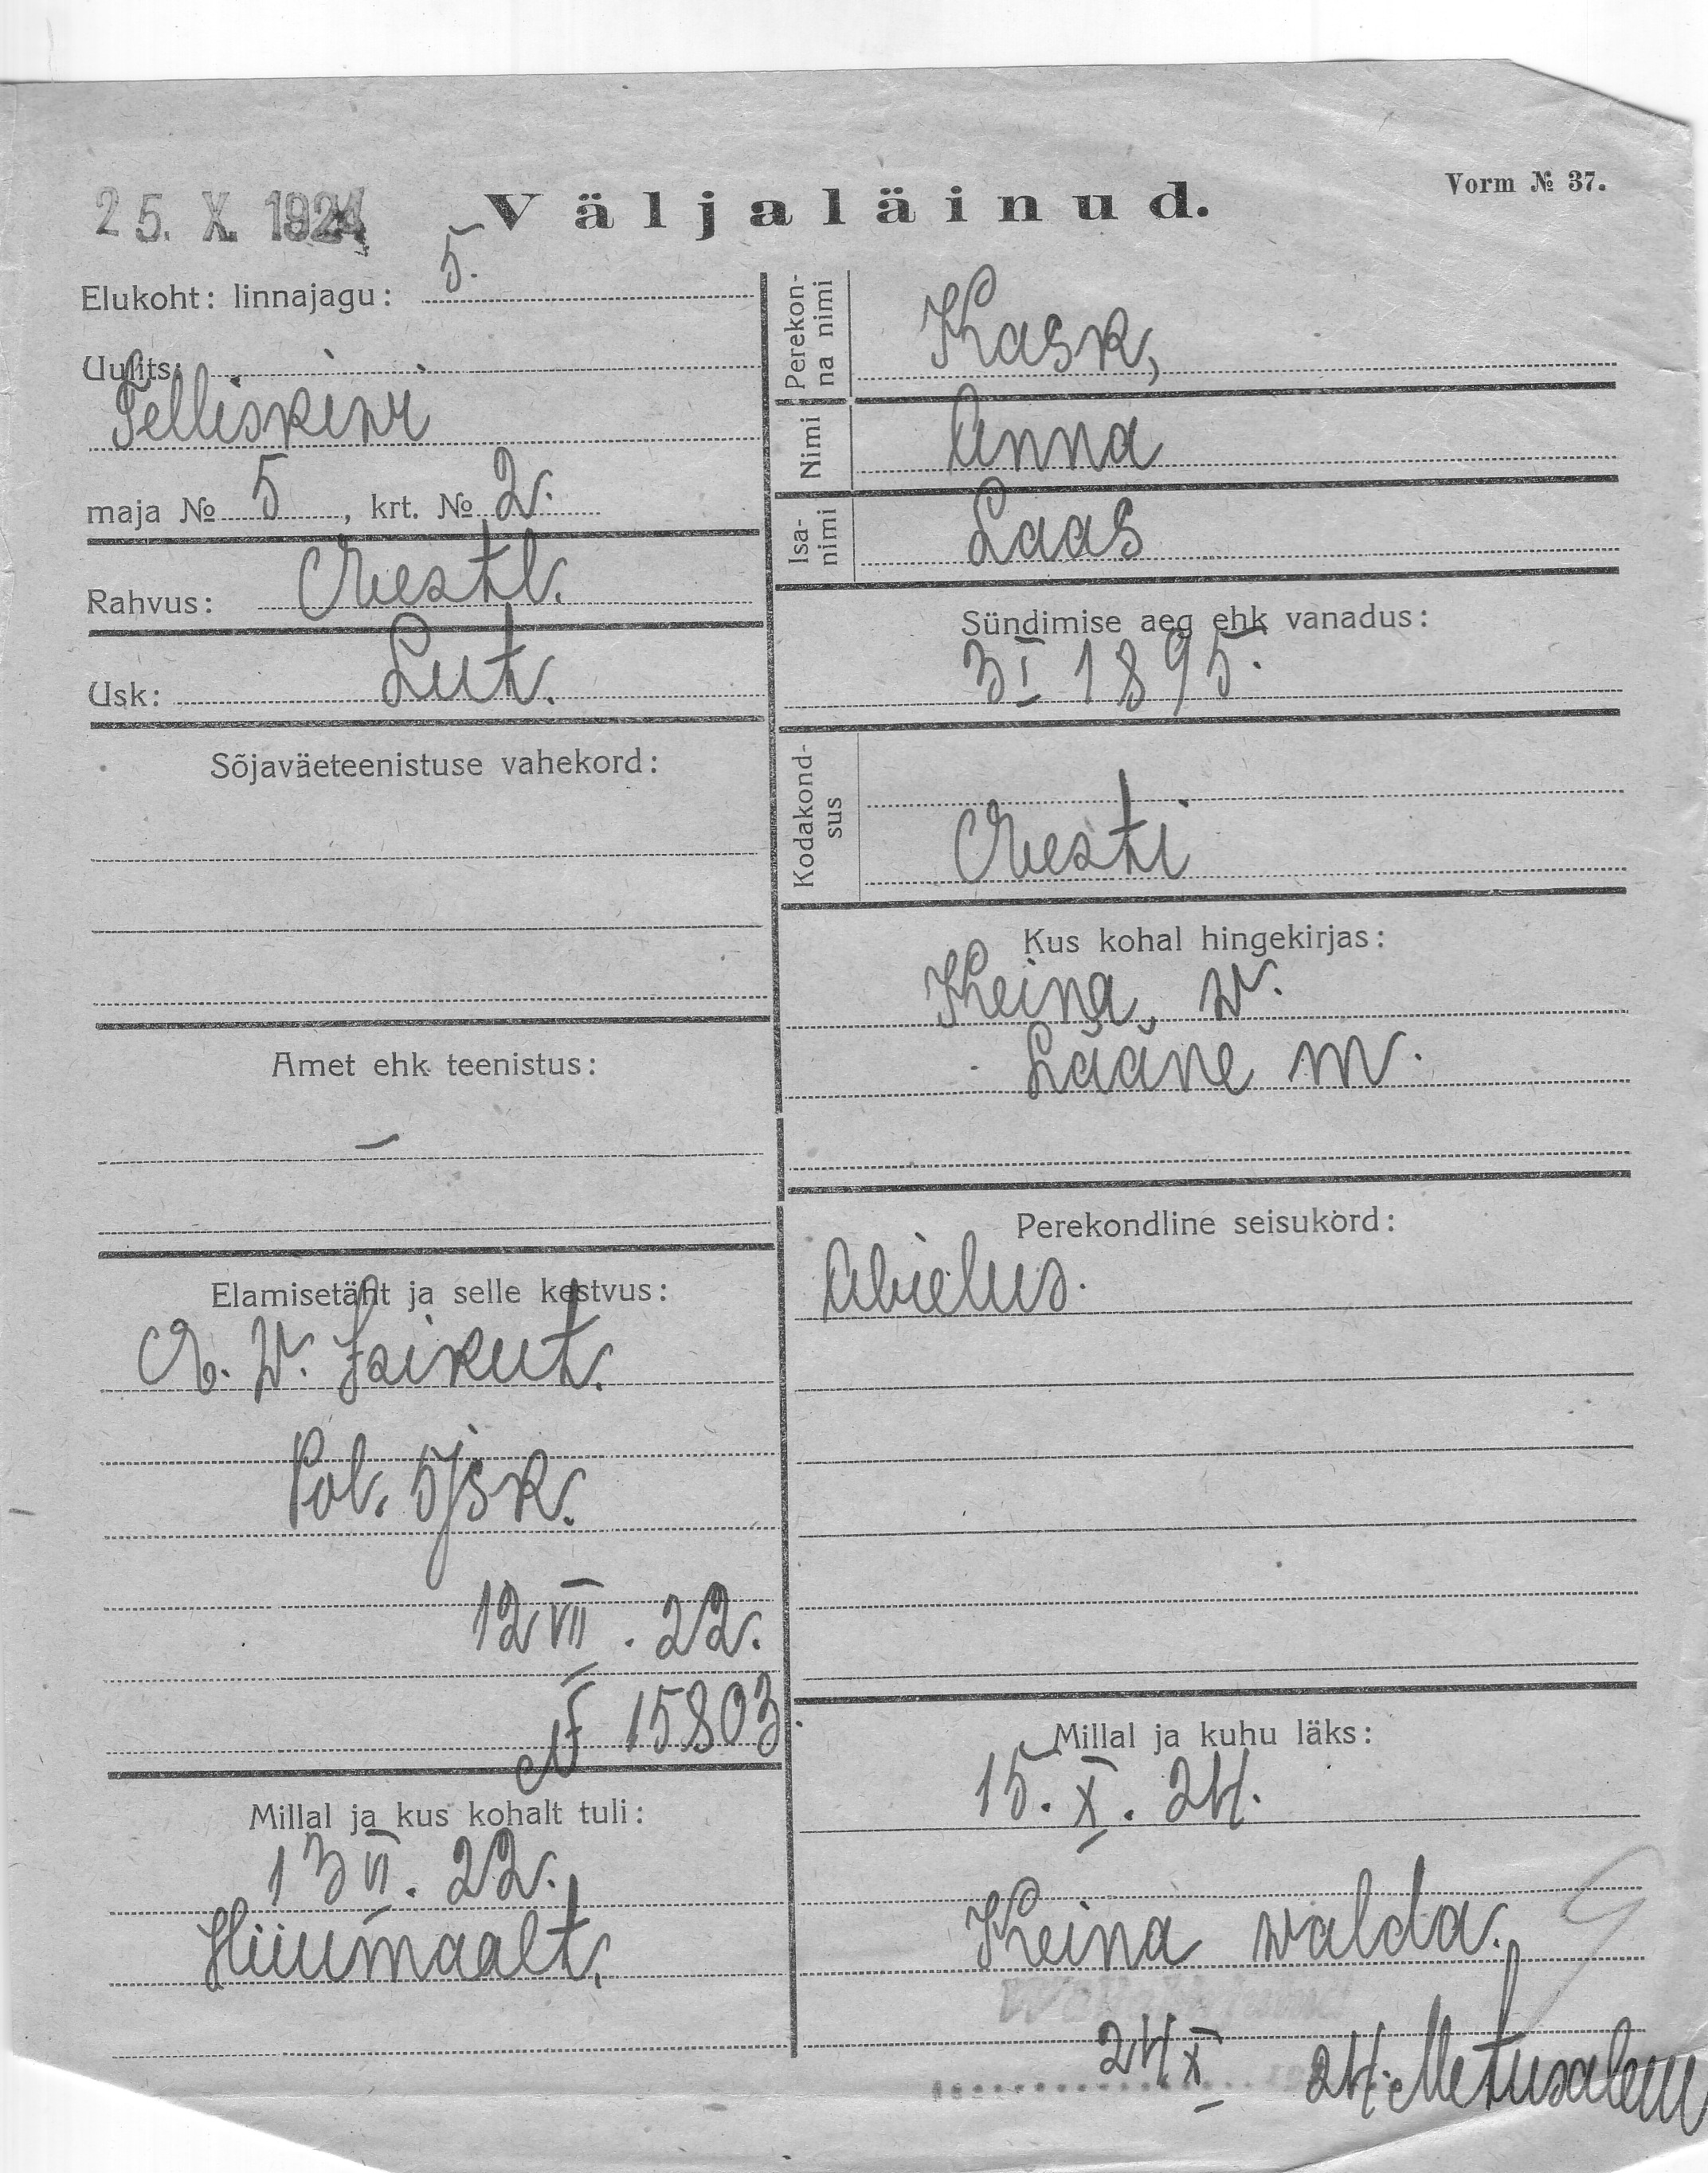 25. X. 1924
Väljaläinud.
Vorm № 37.
Elukoht: linnajagu: 5.
Uulits:
Telliskivi
maja № 5, krt. № 2.
Rahvus: Eestl.
Usk: Lut.
Sõjaväeteenistuse vahekord:
Amet ehk teenistus:
–
Elamisetäht ja selle kestvus:
E. W. Isikut.
Pol. 5 jsk.
12 VII. 22.
№ 15803.
Millal ja kus kohalt tuli:
13 VI. 22.
Hiiumaalt.
Perekon-
na nimi
Kask,
Nimi
Anna
Isa-
nimi
Laas
Sündimise aeg ehk vanadus:
3 I 1895.
Kodakond-
sus
Eesti
Kus kohal hingekirjas:
Keina, w.
Lääne m.
Perekondline seisukord:
Abielus.
Millal ja kuhu läks:
15. X. 24.
Keina walda.
24 X 24. Metusalem